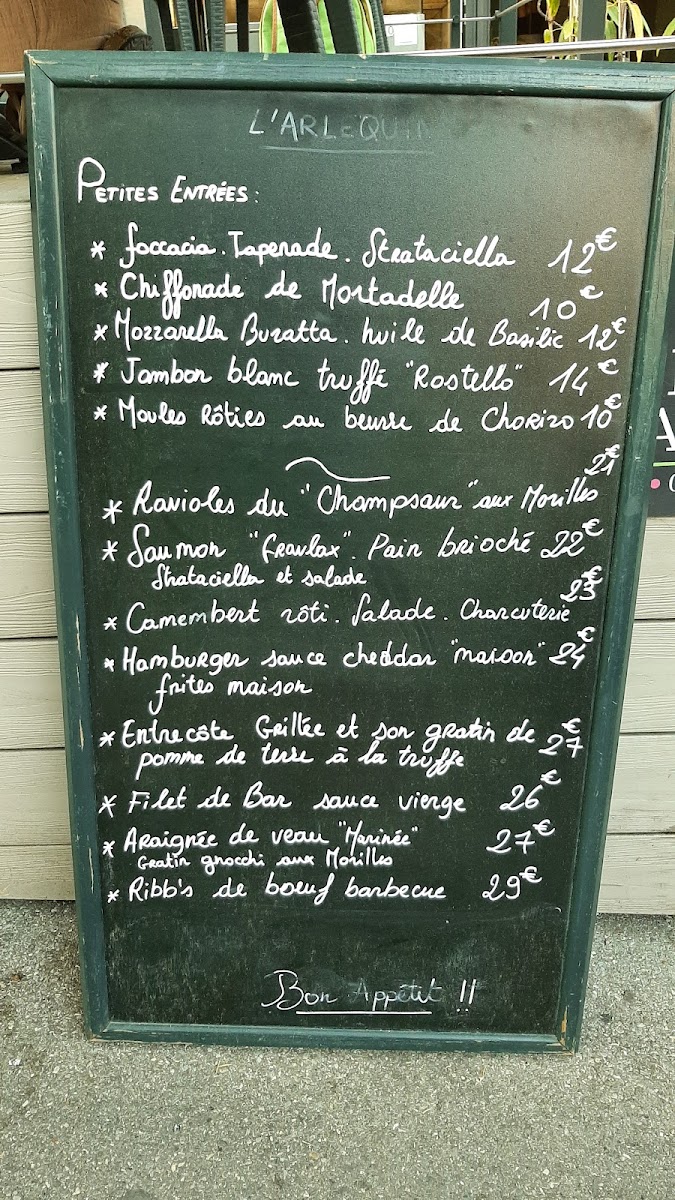 L'ARLEQUIN
PETITES ENTRÉES:
* foccacia. Tapenade. Strataciella 12€
* Chiffonade de Mortadelle 10€
* Mozzarella Buratta. huile de Basilic 12€
* Jambon blanc truffé "Rostello" 14€
* Moules Rôties au beurre de Chorizo 10€
21€
* Ravioles du "Champsaur" aux Morilles
* Saumon "Gravlax". Pain brioché 22€
Strataciella et salade
23€
* Camembert rôti. Salade. Charcuterie
* Hamburger sauce cheddar "maison" 24€
frites maison
* Entrecôte Grillée et son gratin de 27€
pomme de terre à la truffe
* Filet de Bar sauce vierge 26€
* Araignée de veau "Marinée" 27€
Gratin gnocchi aux Morilles
* Ribb's de boeuf barbecue 29€
Bon Appétit !!